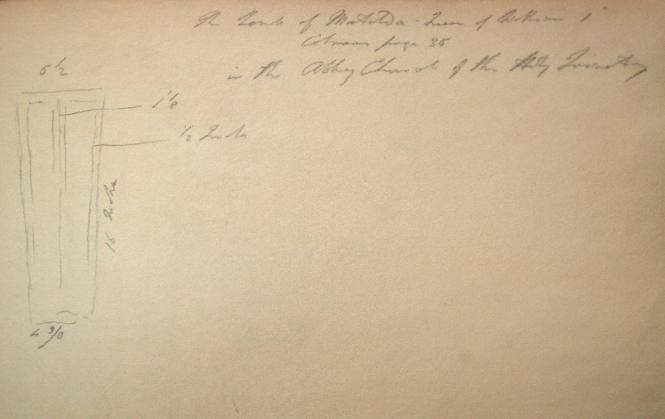 The Tomb of Matilda - Queen of William 1st
Cotmans page 35
in the Abbey Church of the Holy Trinity
5 1/2
1 1/8
1/2 Inch
16 Inches
4 3/8